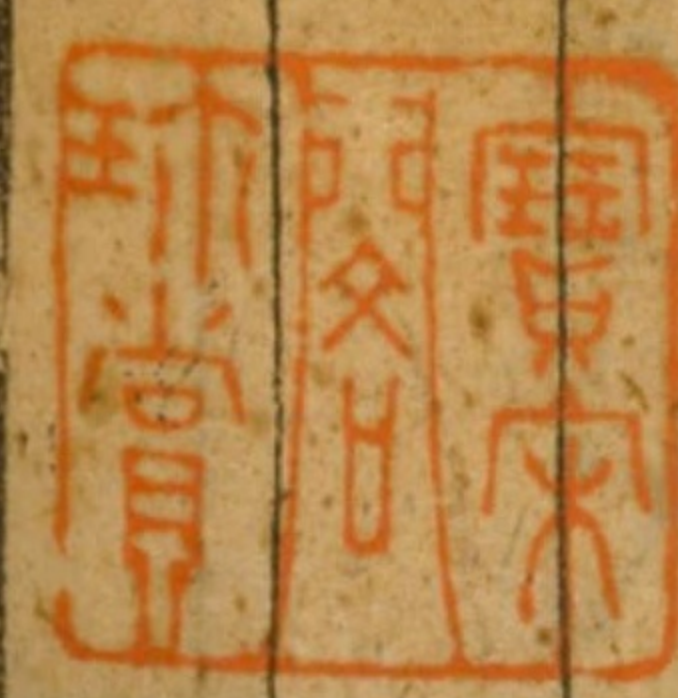 寶宋
閣
珍賞